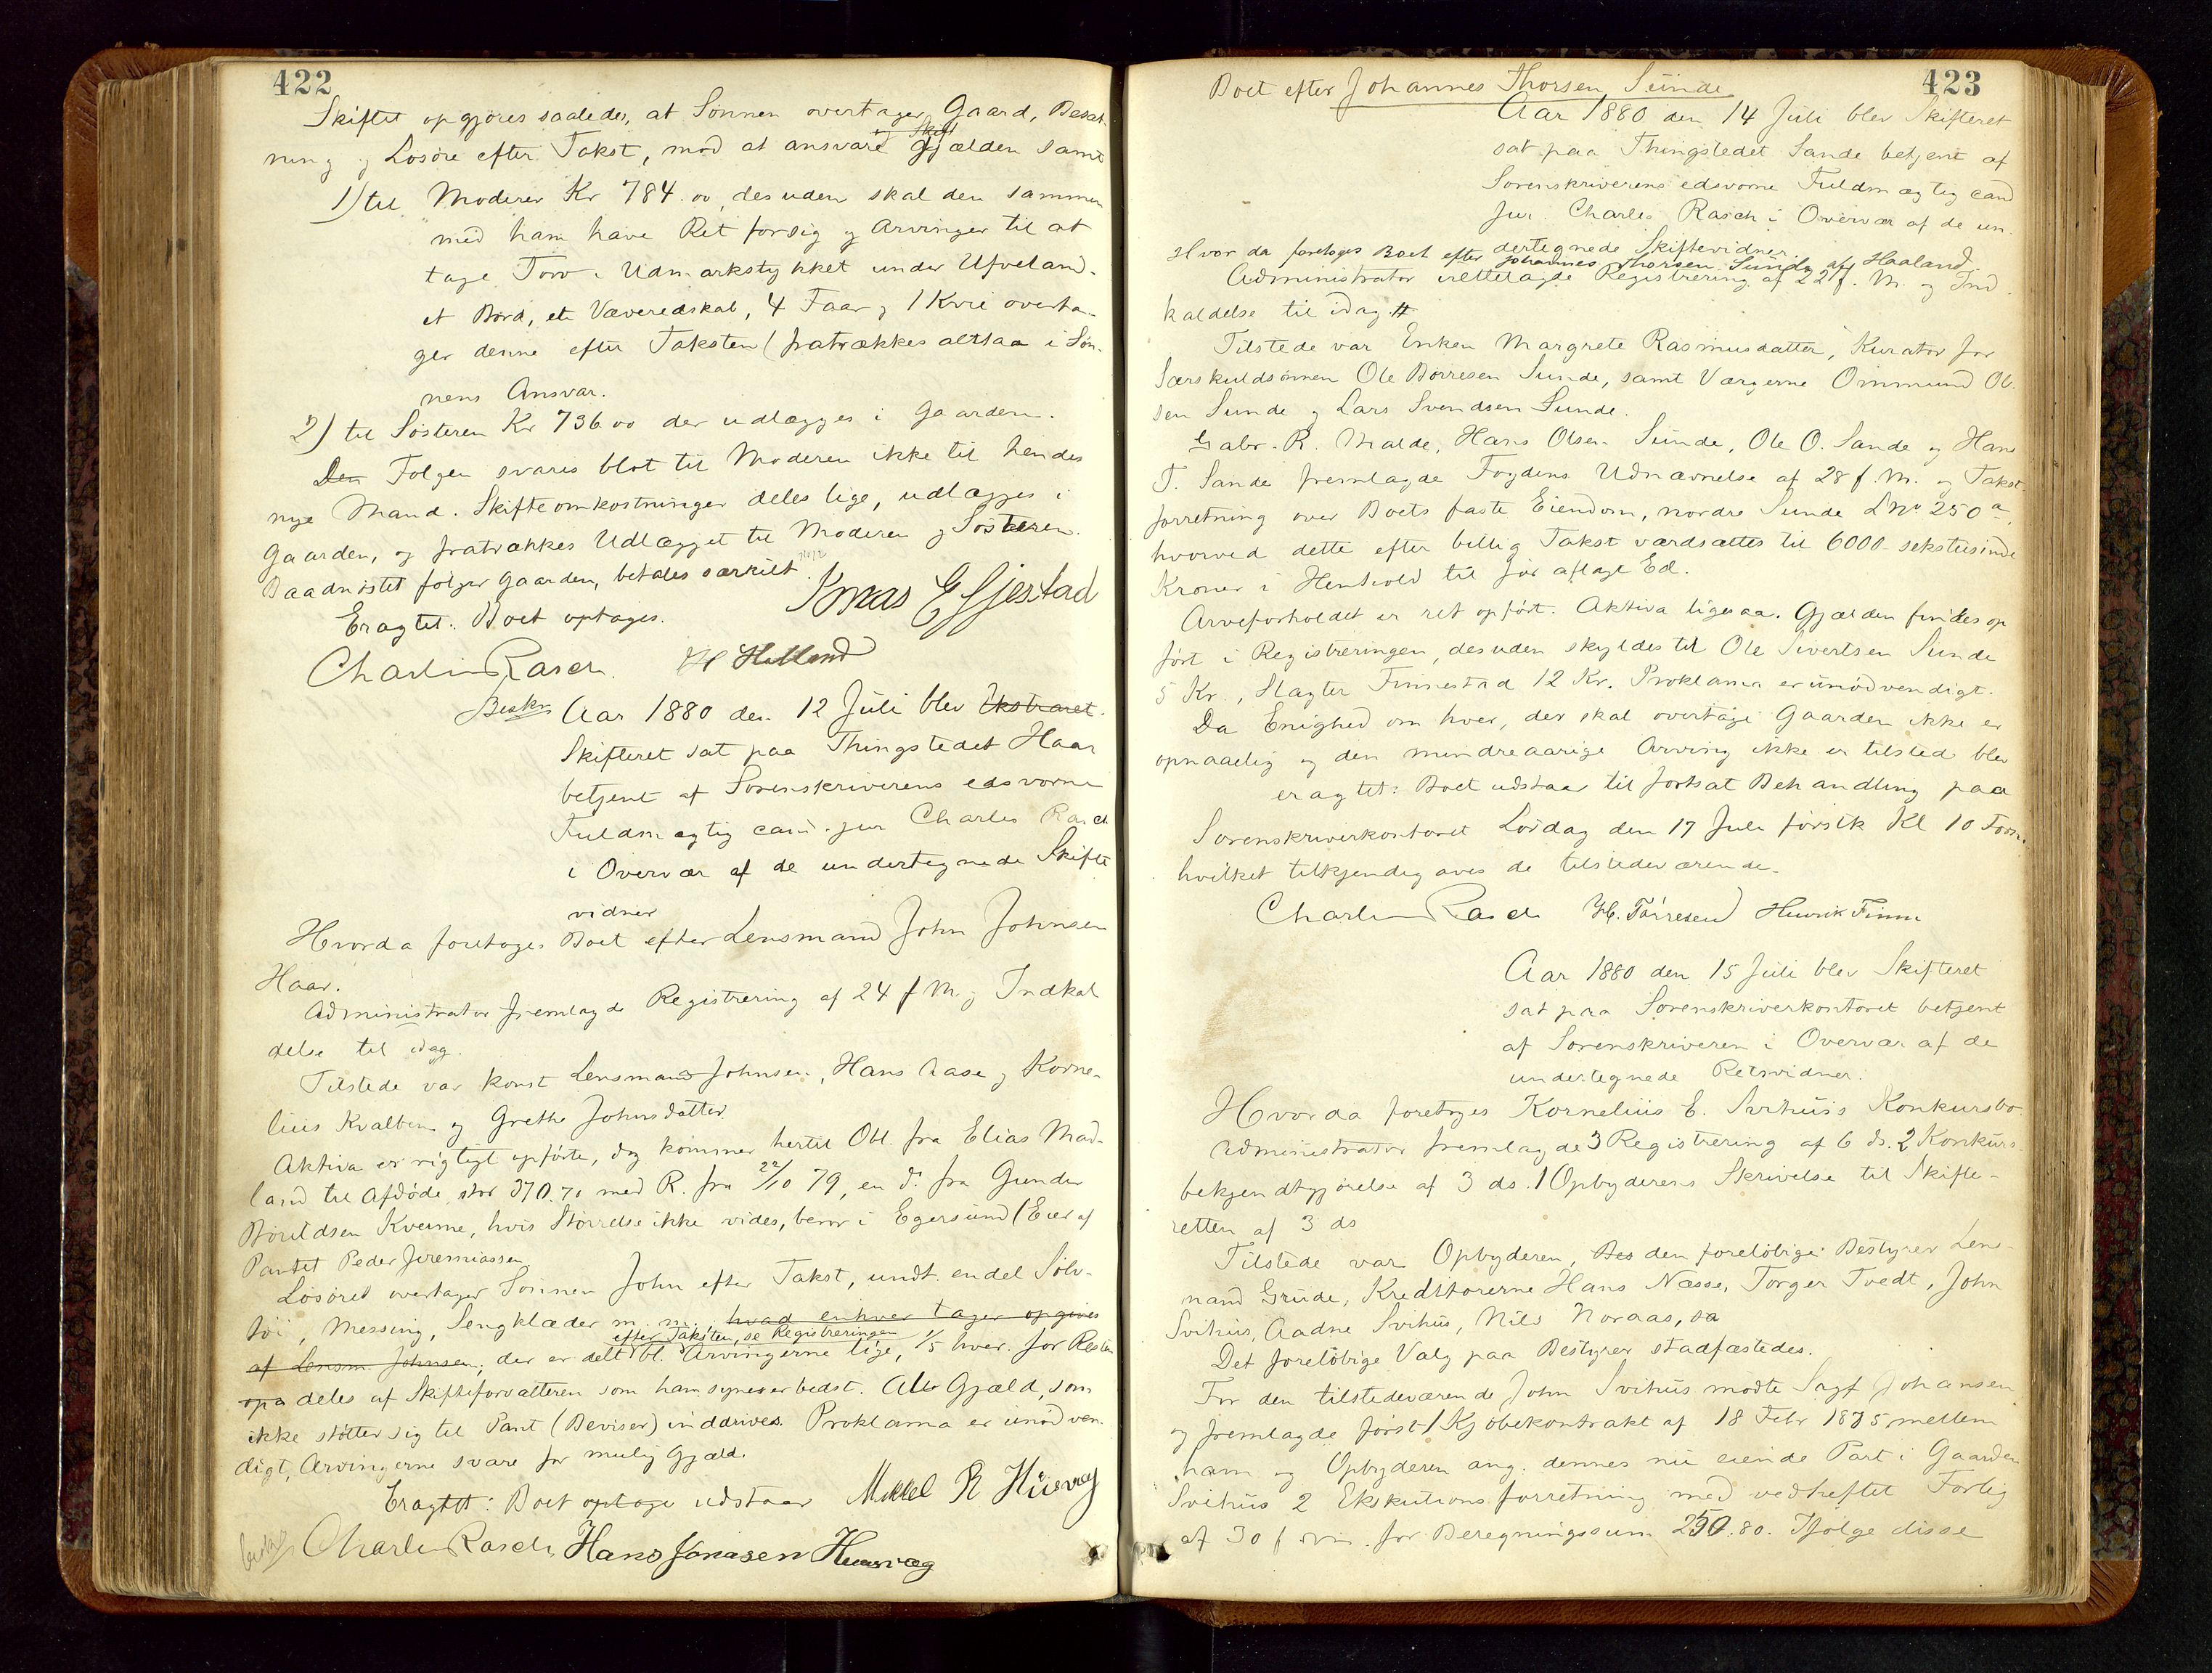 422
Skiftet opgjøres saaledes, at Sønnen overtager Gaard, Besæt
ning og Løsøre efter Takst, mod at ansvare Gjælden samt
1) til Moderen Kr 784.00, desuden skal den sammen
med ham have Ret for sig og Arvinger til at
tage Torv i Udmarkstykket under Ufveland.
et Bord, et Væveredskab, 4 Faar og 1 Kvie overta-
ger denne efter Taksten (fratrækkes altsaa i Søn-
nens Ansvar.
2) til Søsteren Kr 736.00 der udlægges i Gaarden.
Den Følgen svares blot til Moderen ikke til hendes
nye Mand. Skifteomkostninger deles lige, udlægges i
Gaarden, og fratrækkes Udlægget til Moderen og Søsteren.
Baadnøstet følger Gaarden, betales særskilt.
Eragtet: Boet optages.
Jonas E Gjestad
Charles Rasch. Helland
Beskr
Aar 1880 den 12 Juli blev Ekstraret
Skifteret sat paa Thingstedet Haar
betjent af Sorenskriverens edsvorne
Fuldmægtig cand. jur Charles Rasch
i Overvær af de undertegnede Skifte
vidner
Hvorda foretoges Boet efter Lensmand John Johnsen
Haar.
Administrator fremlagde Registrering af 24 f M. og Indkal
delse til idag.
Tilstede var konst Lensmand Johnsen, Hans Aase og Korne-
lius Kvalbein og Grethe Johnsdatter
Aktiva er rigtigt opførte, dog kommer hertil Obl. fra Elias Mad-
land til Afdøde, stor 370.70 med R. fra 22/10 79, en do fra Gunder
Børuldsen Kverme, hvis Størrelse ikke vides, beror i Egersund (Eier af
Pantet Peder Jeremiassen
Løsøret overtager Sønnen John efter Takst, undt. endel Sølv-
tøi, Messing, Sengklæder m. m., hvad enhver tager opgives
efter Taksten, se Registreringen
af Lensm. Johnsen, der er delt bl. Arvingerne lige, 1/5 hver. for Resten
opa deles af Skifteforvalteren som ham synes er bedst. Alt Gjæld, som
ikke støtter sig til Pant (Beviser) inddrives. Proklama er unødven-
digt, Arvingerne svare for mulig Gjæld.
Eragtet: Boet optage udstaar
Mikkel R Hüsvæg
Charles Rasch Hans Jonasen Huusvæg
423
Boet efter Johannes Thorsen Sunde
Aar 1880 den 14 Juli blev Skifteret
sat paa Thingstedet Sande betjent af
Sorenskriverens edsvorne Fuldmægtig cand
jur. Charles Rasch i Overvær af de un
dertegnede Skiftevidner
Hvor da foretoges Boet efter Johannes Thorsen Sunde af Haaland
Administrator irettelagde Registrering af 22 f. M. og Ind
kaldelse til idag #
Tilstede var Enken Margrete Rasmusdatter, Kurator for
Særskuldsønnen Ole Børresen Sunde, samt Værgerne Ommund Ol-
sen Sunde og Lars Svendsen Sunde.
Gabr. R. Malde, Hans Olsen Sunde, Ole O. Sande og Hans
T. Sande fremlagde Fogdens Udnævnelse af 28 f. M. og Takst
forretning over Boets faste Eiendom, nordre Sunde LNr 250 a,
hvorved dette efter billig Takst værdsættes til 6000 sekstusinde
Kroner i Henhold til før aflagt Ed.
Arveforholdet er ret opført. Aktiva ligesaa. Gjælden findes op
ført i Registreringen, desuden skyldes til Ole Sivertsen Sunde
5 Kr., Slagter Finnestad 12 Kr. Proklama er unødvendigt.
Da Enighed om hver, der skal overtage Gaarden ikke er
opnaaelig og den mindreaarige Arving ikke er tilsted blev
eragtet: Boet udstaar til fortsat Behandling paa
Sorenskriverkontoret Lørdag den 17 Juli førstk Kl 10 Form.
hvilket tilkjendegaves de tilstedeværende.
Charles Rasch H. Tørresen Henrik Finne
Aar 1880 den 15 Juli blev Skifteret
sat paa Sorenskriverkontoret betjent
af Sorenskriveren i Overvær af de
undertegnede Retsvidner:
Hvorda foretoges Kornelius E. Svihus Konkursbo.
Administrator fremlagde 3 Registrering af 6 ds. 2 Konkurs
bekjendtgjørelse af 3 ds. 1 Opbyderens Skrivelse til Skifte-
retten af 3 ds
Tilstede var Opbyderen, Bes den foreløbige Bestyrer Lens-
mand Grude, Kreditorerne Hans Næsse, Torger Tvedt, John
Svihus, Aadne Svihus, Nils Noraas, sa
Det foreløbige Valg paa Bestyrer stadfæstedes.
For den tilstedeværende John Svihus mødte Sagf Johansen
og fremlagde først 1 Kjøbekontrakt af 18 Febr 1875 mellem
ham og Opbyderen ang. dennes nu eiende Part i Gaarden
Svihus 2 Eksekutionsforretning med vedheftet Forlig
af 30 f. for Beregningssum 250.80. Ifølge disse